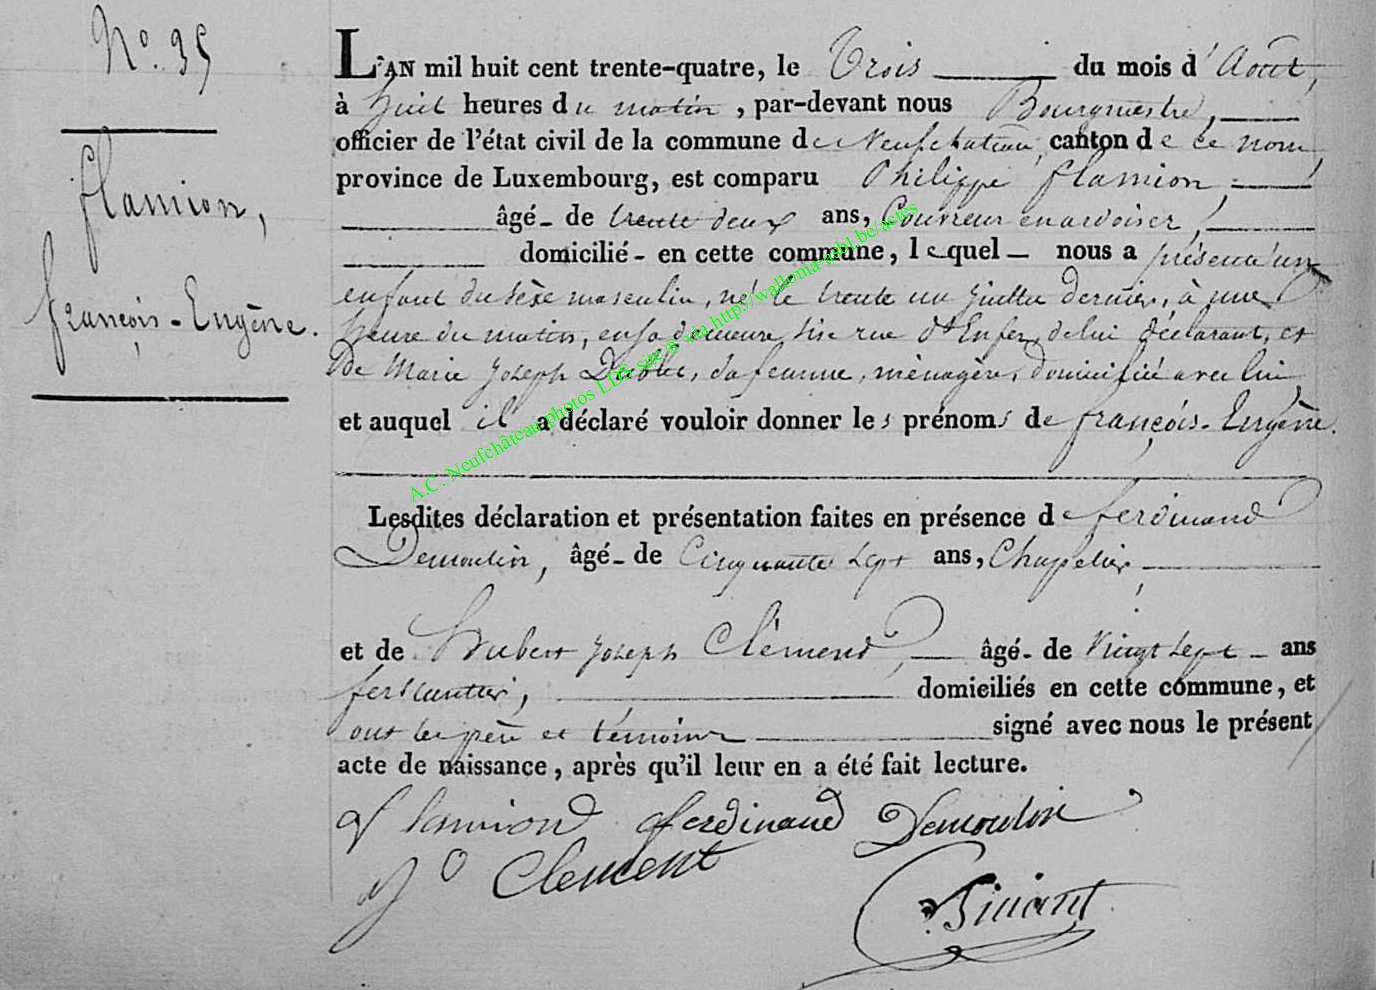 N° 35
flamion,
françois-Eugène.
L'AN mil huit cent trente-quatre, le Trois du mois d'Août,
à huit heures du matin, par-devant nous Bourgmestre,
officier de l'état civil de la commune de Neufchateau, canton de ce nom,
province de Luxembourg, est comparu Philippe flamion,
âgé de trente deux ans, Couvreur en ardoises,
domicilié en cette commune, lequel nous a présenté un
enfant du sèxe masculin, né le trente un juillet dernier, à une
heure du matin, en sa demeure, sise rue d'Enfer, de lui déclarant, et
De Marie Joseph, sa femme, ménagère, domiciliée avec lui,
et auquel il a déclaré vouloir donner les prénoms de françois-Eugène.
Lesdites déclaration et présentation faites en présence de ferdinand
Demoulin, âgé de Cinquante sept ans, Chapelier,
et de Hubert Joseph Clément, âgé de Vingt sept ans
ferblantier, domiciliés en cette commune, et
ont les père et témoins signé avec nous le présent
acte de naissance, après qu'il leur en a été fait lecture.
flamion ferdinand Demoulin
Clement
A.C. Neufchâteau photos LDS site &amp; via http://wallonia-asbl.be/actes